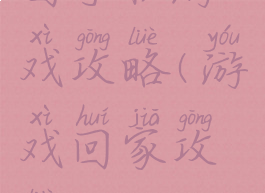 xì gōng lüè yóu
戏攻略(游
xì huí jiā gōng
戏回家攻